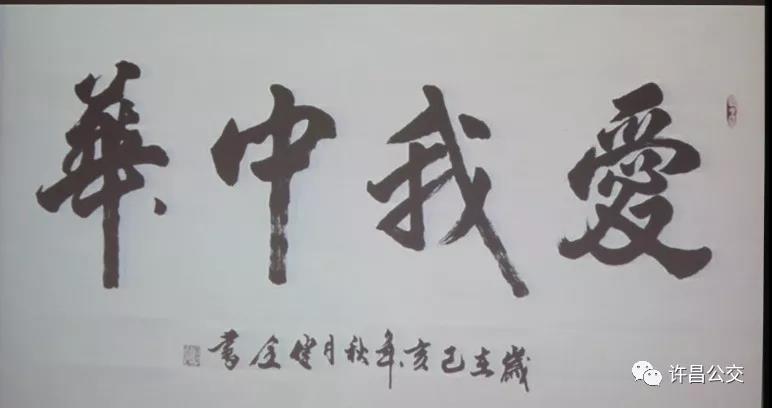 愛我中華
歲在己亥年秋月健全書
许昌公交